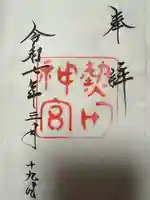 奉拝
熱田
神宮
令和七年三月
十九日